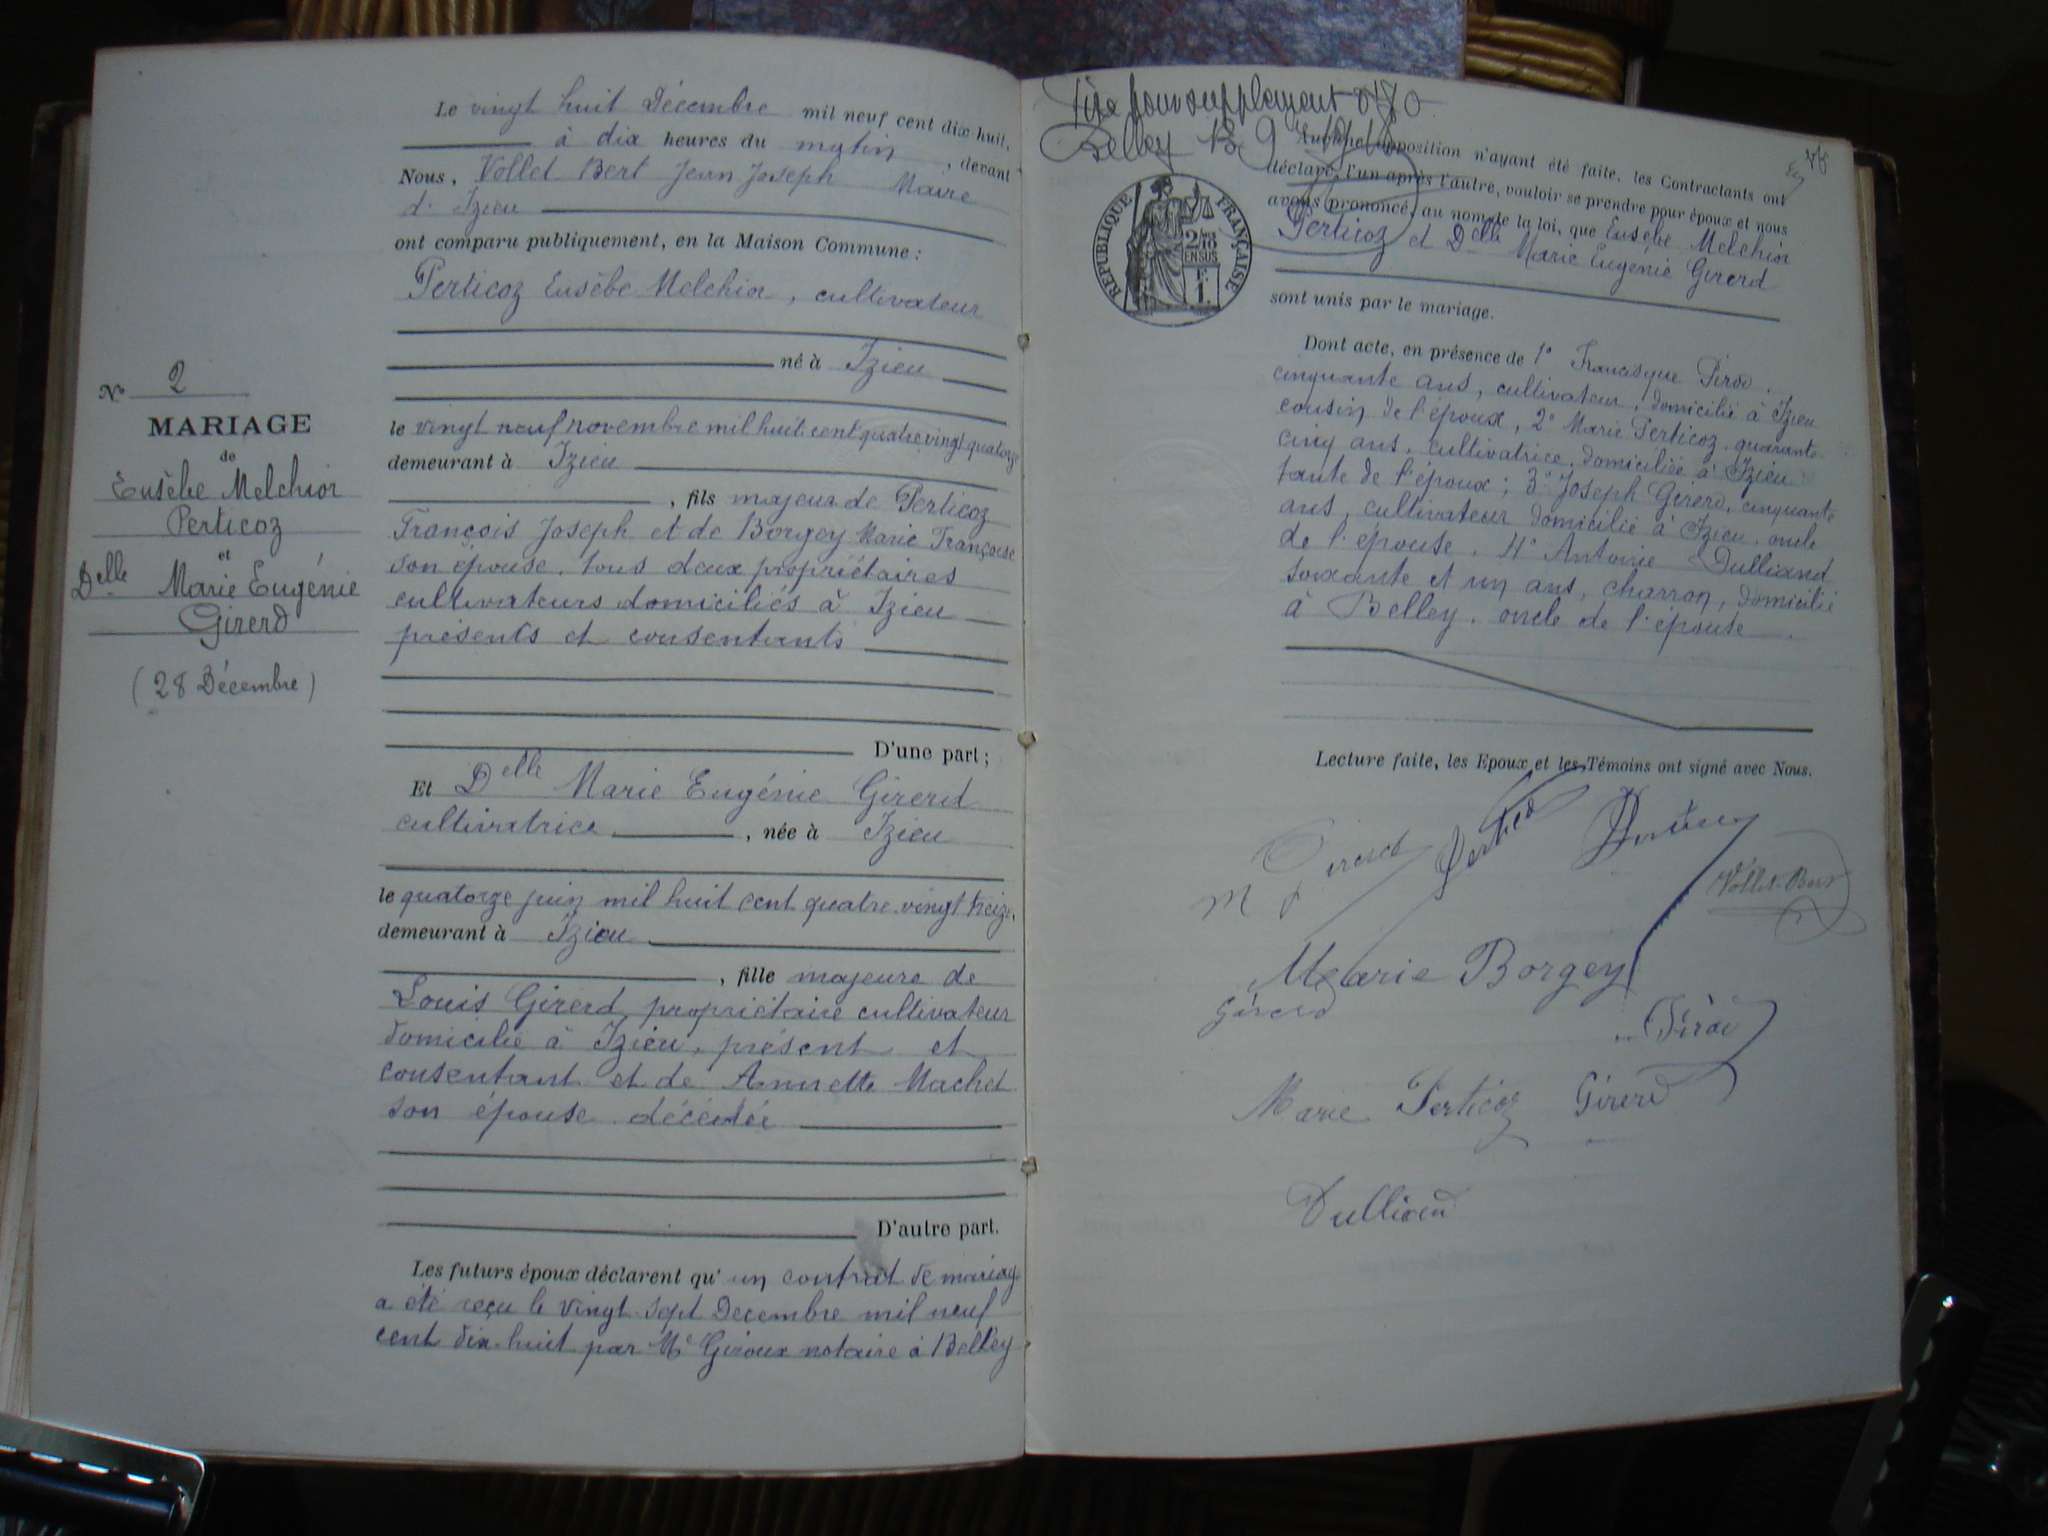 Le vingt huit Décembre mil neuf cent dix huit,
à dix heures du matin, devant
Nous, Vollet Bert Jean Joseph Maire
d'Izieu
ont comparu publiquement, en la Maison Commune :
Perticoz Eusèbe Melchior, cultivateur
né à Izieu
le vingt neuf novembre mil huit cent quatre vingt quatorze
demeurant à Izieu
, fils majeur de Perticoz
François Joseph et de Borgey Marie Françoise
son épouse, tous deux propriétaires
cultivateurs domiciliés à Izieu
présents et consentants
D'une part ;
Et Delle Marie Eugénie Girerd
cultivatrice, née à Izieu
le quatorze juin mil huit cent quatre vingt treize,
demeurant à Izieu
, fille majeure de
Louis Girerd, propriétaire cultivateur
domicilié à Izieu, présent et
consentant et de Annette Machet
son épouse décédée
D'autre part.
Les futurs époux déclarent qu'un contrat de mariage
a été reçu le vingt sept Décembre mil neuf
cent dix-huit par Me Giroux notaire à Belley
No 2
MARIAGE
de
Eusèbe Melchior
Perticoz
et
Delle Marie Eugénie
Girerd
(28 Décembre)
pour supplément
Belley
RÉPUBLIQUE FRANÇAISE
2/10 EN SUS
F. 1.
Aucune opposition n'ayant été faite, les Contractants ont
déclaré, l'un après l'autre, vouloir se prendre pour époux et nous
avons prononcé, au nom de la loi, que Eusèbe Melchior
Perticoz et Delle Marie Eugénie Girerd
sont unis par le mariage.
Dont acte, en présence de 1° Francisque Pirod,
cinquante ans, cultivateur, domicilié à Izieu
cousin de l'époux, 2° Marie Perticoz quarante
cinq ans, cultivatrice, domiciliée à Izieu
tante de l'époux ; 3° Joseph Girerd, cinquante
ans, cultivateur domicilié à Izieu, oncle
de l'épouse, 4° Antoine Dulliand
soixante et un ans, charron, domicilié
à Belley, oncle de l'épouse.
Lecture faite, les Epoux et les Témoins ont signé avec Nous.
M Girerd
Perticoz
Vollet-Bert
Marie Borgey
Girerd
Pirod
Marie Perticoz
Girerd
Dulliand